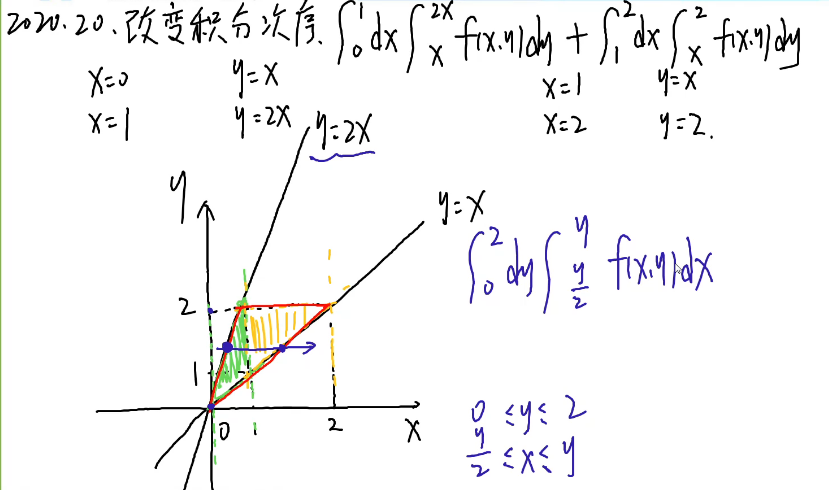 2020.20.改变积分次序. ∫₀¹dx∫ₓ²ˣf(x,y)dy + ∫₁²dx∫ₓ²f(x,y)dy
x=0 y=x x=1 y=x
x=1 y=2x x=2 y=2.
y=2x
y
y=x
∫₀²dy∫_{y/2}^{y} f(x,y)dx
2
1
0 1 2 x
0≤y≤2
y/2≤x≤y